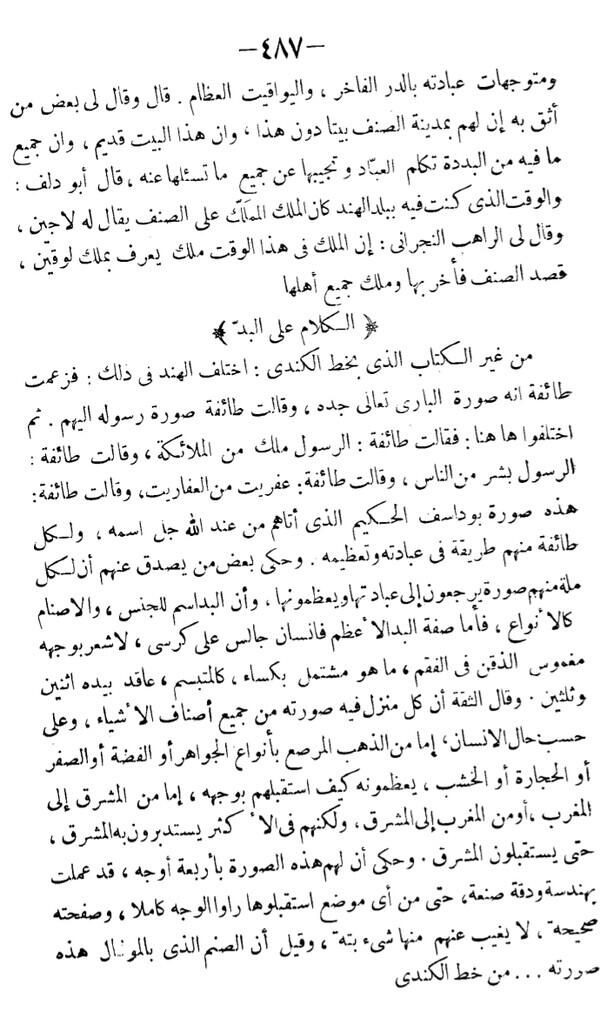 –٤٨٧–
ومتوجهات عبادته بالدر الفاخر ، واليواقيت العظام . قال وقال لى بعض من
أثق به إن لهم بمدينة الصنف بيتا دون هذا ، وان هذا البيت قديم ، وان جميع
ما فيه من البددة تكلم العبّاد وتجيبها عن جميع ما تسئلها عنه ، قال أبو دلف :
والوقت الذى كنت فيه ببلد الهند كان الملك المملّك على الصنف يقال له لاجين ،
وقال لى الراهب النجرانى : إن الملك فى هذا الوقت ملك يعرف بملك لوقين ،
قصد الصنف فأخر بها وملك جميع أهلها
﴿ الكلام على البدّ ﴾
من غير الكتاب الذى بخط الكندى : اختلف الهند فى ذلك : فزعمت
طائفة انه صورة البارى تعالى جده ، وقالت طائفة صورة رسوله اليهم . ثم
اختلفوا ها هنا : فقالت طائفة : الرسول ملك من الملائكة ، وقالت طائفة :
الرسول بشر من الناس ، وقالت طائفة : عفريت من العفاريت ، وقالت طائفة :
هذه صورة بوداسف الحكيم الذى أتاهم من عند الله جل اسمه ، ولكل
طائفة منهم طريقة فى عبادته وتعظيمه . وحكى بعض من يصدق عنهم أن لكل
ملة منهم صورة يرجعون إلى عبادتها ويعظمونها ، وأن البد اسم للجنس ، والاصنام
كالأنواع ، فأما صفة البد الأعظم فانسان جالس على كرسى ، لا شعر بوجهه
مغموس الذقن فى الفقم ، ما هو مشتمل بكساء ، كالمتبسم ، عاقد بيده اثنين
وثلثين . وقال الثقة أن كل منزل فيه صورته من جميع أصناف الأشياء ، وعلى
حسب حال الانسان ، إما من الذهب المرصع بأنواع الجواهر أو الفضة أو الصفر
أو الحجارة أو الخشب ، يعظمونه كيف استقبلهم بوجهه ، إما من المشرق إلى
المغرب ، أو من المغرب إلى المشرق ، ولكنهم فى الأكثر يستدبرون به المشرق ،
حتى يستقبلون المشرق . وحكى أن لهم هذه الصورة بأربعة أوجه ، قد عملت
بهندسة ودقة صنعة ، حتى من أى موضع استقبلوها راوا الوجه كاملا ، وصفحته
صحيحة ، لا يغيب عنهم منها شىء بتة ، وقيل أن الصنم الذى بالمولتان هذه
صورته ... من خط الكندى